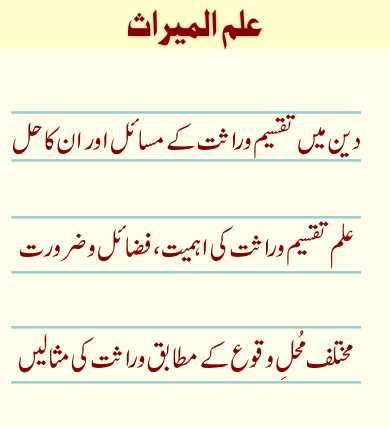 علم المیراث
دین میں تقسیم وراثت کے مسائل اور ان کا حل
علم تقسیم وراثت کی اہمیت، فضائل و ضرورت
مختلف مُحلِ وقوع کے مطابق وراثت کی مثالیں